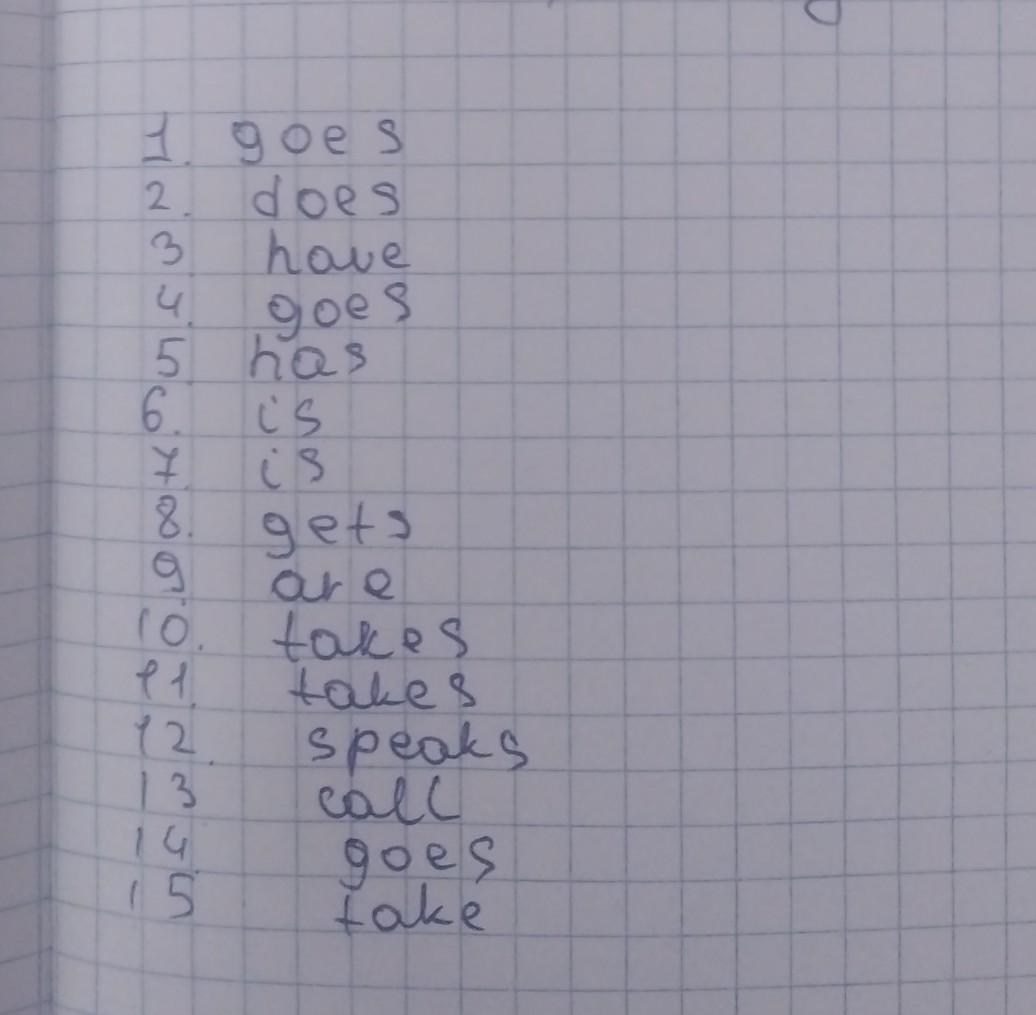 1. goes
2. does
3 have
4. goes
5 has
6. is
7. is
8. gets
9 are
10. takes
11. takes
12. speaks
13 call
14. goes
15 take